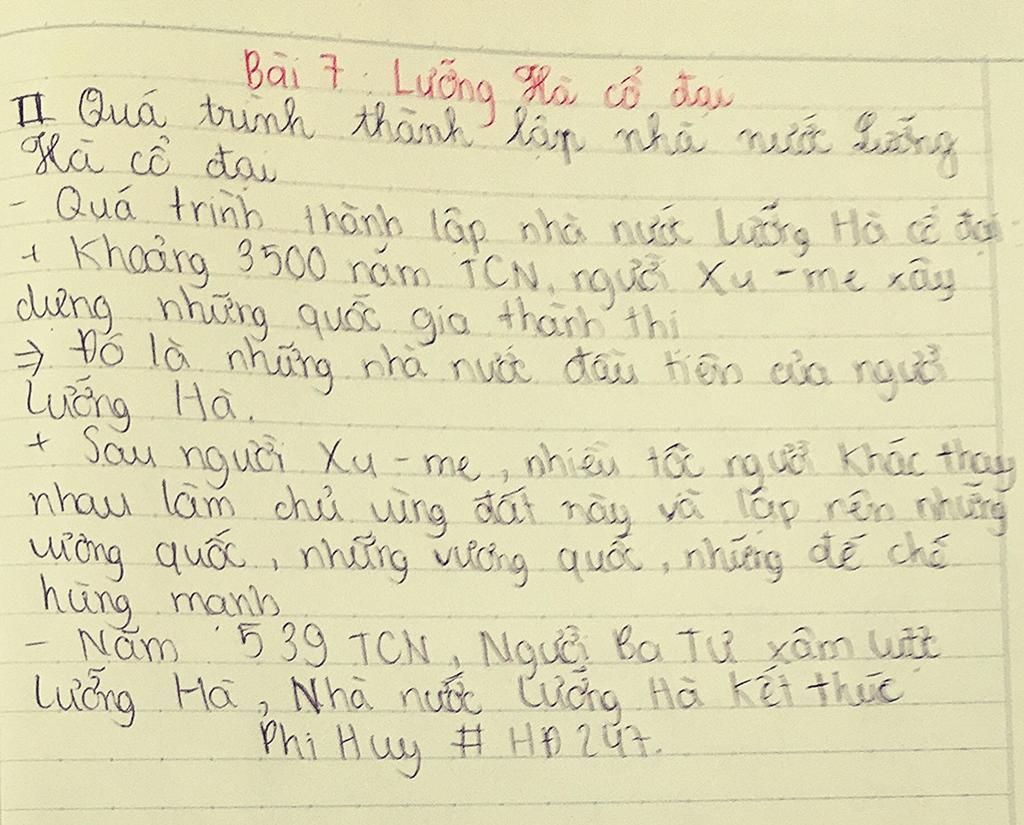 Bài 7 : Lưỡng Hà cổ đại
II Quá trình thành lập nhà nước Lưỡng
Hà cổ đại
- Quá trình thành lập nhà nước Lưỡng Hà cổ đại
+ Khoảng 3500 năm TCN, người Xu-me xây
dựng những quốc gia thành thị
⇒ Đó là những nhà nước đầu tiên của người
Lưỡng Hà.
+ Sau người Xu-me, nhiều tộc người khác thay
nhau làm chủ vùng đất này và lập nên những
vương quốc, những vương quốc, những đế chế
hùng mạnh
- Năm 539 TCN, Người Ba Tư xâm lược
Lưỡng Hà, Nhà nước Lưỡng Hà kết thúc
Phi Huy # HĐ 247.